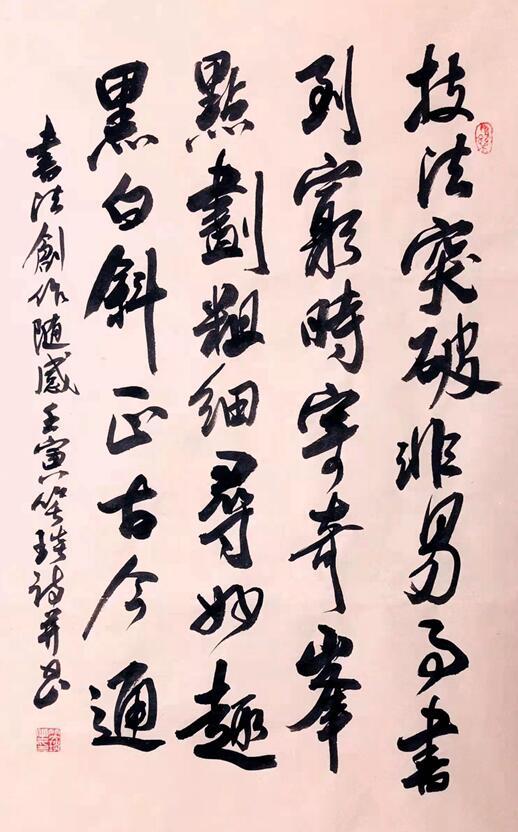 技法突破非易事書
到窮時寄奇峯
點劃粗細尋妙趣
黑白斜正古今通
書法創作隨感壬寅笑琰詩并書